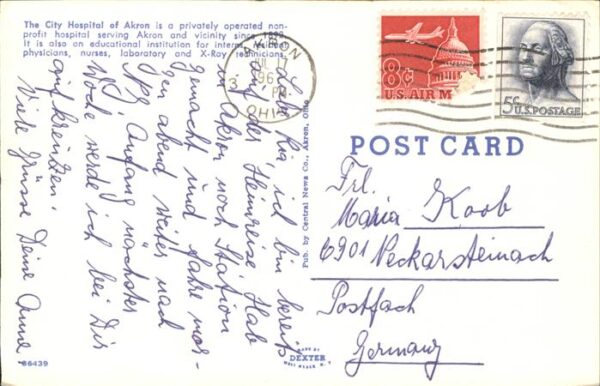 The City Hospital of Akron is a privately operated non-
profit hospital serving Akron and vicinity since
It is also an educational institution for interns, resident
physicians, nurses, laboratory and X-Ray technicians.
AKRON
JUL
196
PM
OHIO
8c
U.S. AIR M
5c U.S. POSTAGE
POST CARD
ich bin bereits
auf der Heimreise. Hab
in Akron noch Station
gemacht und fahre mor-
gen abend weiter nach
Anfang nächster
Woche werde ich bei Dir
aufkreuzen.
Viele Grüsse Deine Anne
Pub. by Central News Co., Akron, Ohio
Frl.
Maria Koob
6901 Neckarsteinach
Postfach
Germany
MADE BY
DEXTER
WEST NYACK N. Y.
86439